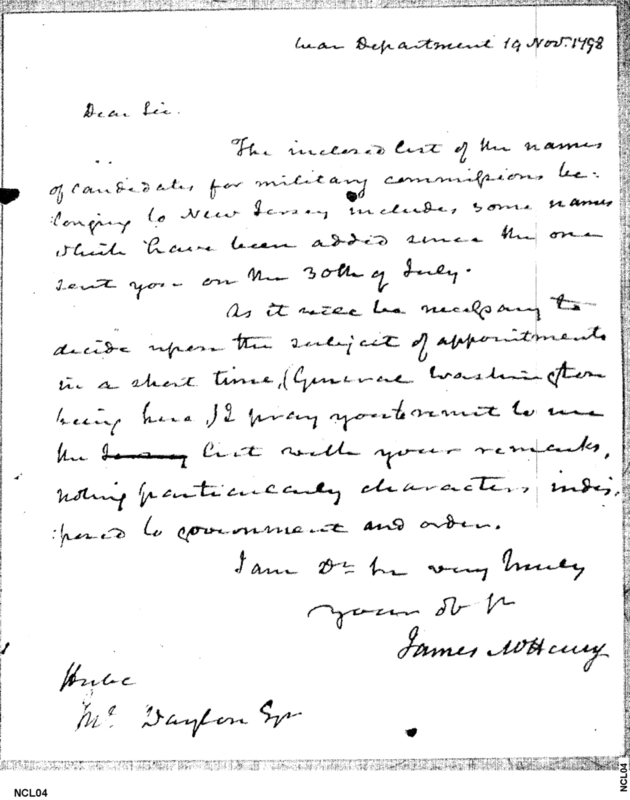 War Department 19 Nov. 1798
Dear Sir.
The inclosed list of the names
of candidates for military commissions be-
longing to New Jersey includes some names
which have been added since the one
sent you on the 30th of July.
As it will be necessary to
decide upon the subject of appointments
in a short time, (General Washington
being here,) I pray you to remit to me
the Jersey list with your remarks,
noting particularly characters indis-
:posed to government and order.
I am Dr Sr very truly
your ob st
James McHenry
Honble
Mr. Dayton Esqr
NCL04
NCL04